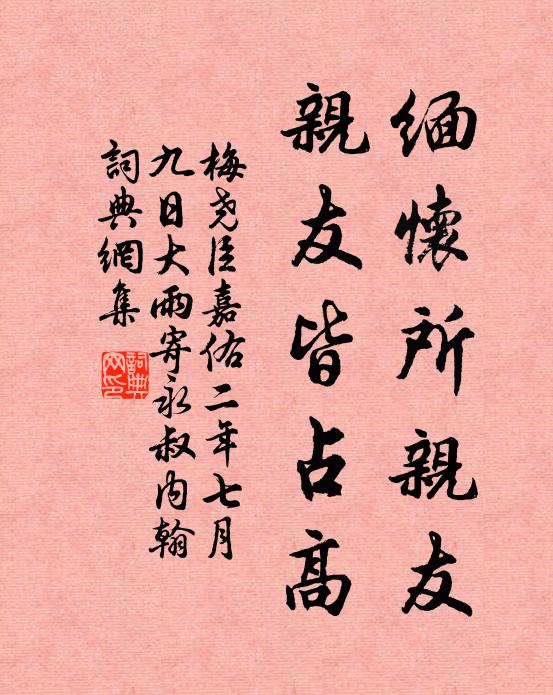 緬懷所親友
親友皆占高
梅堯臣嘉佑二年七月
九日大雨寄永叔内翰
詞典網集
詞典
网印